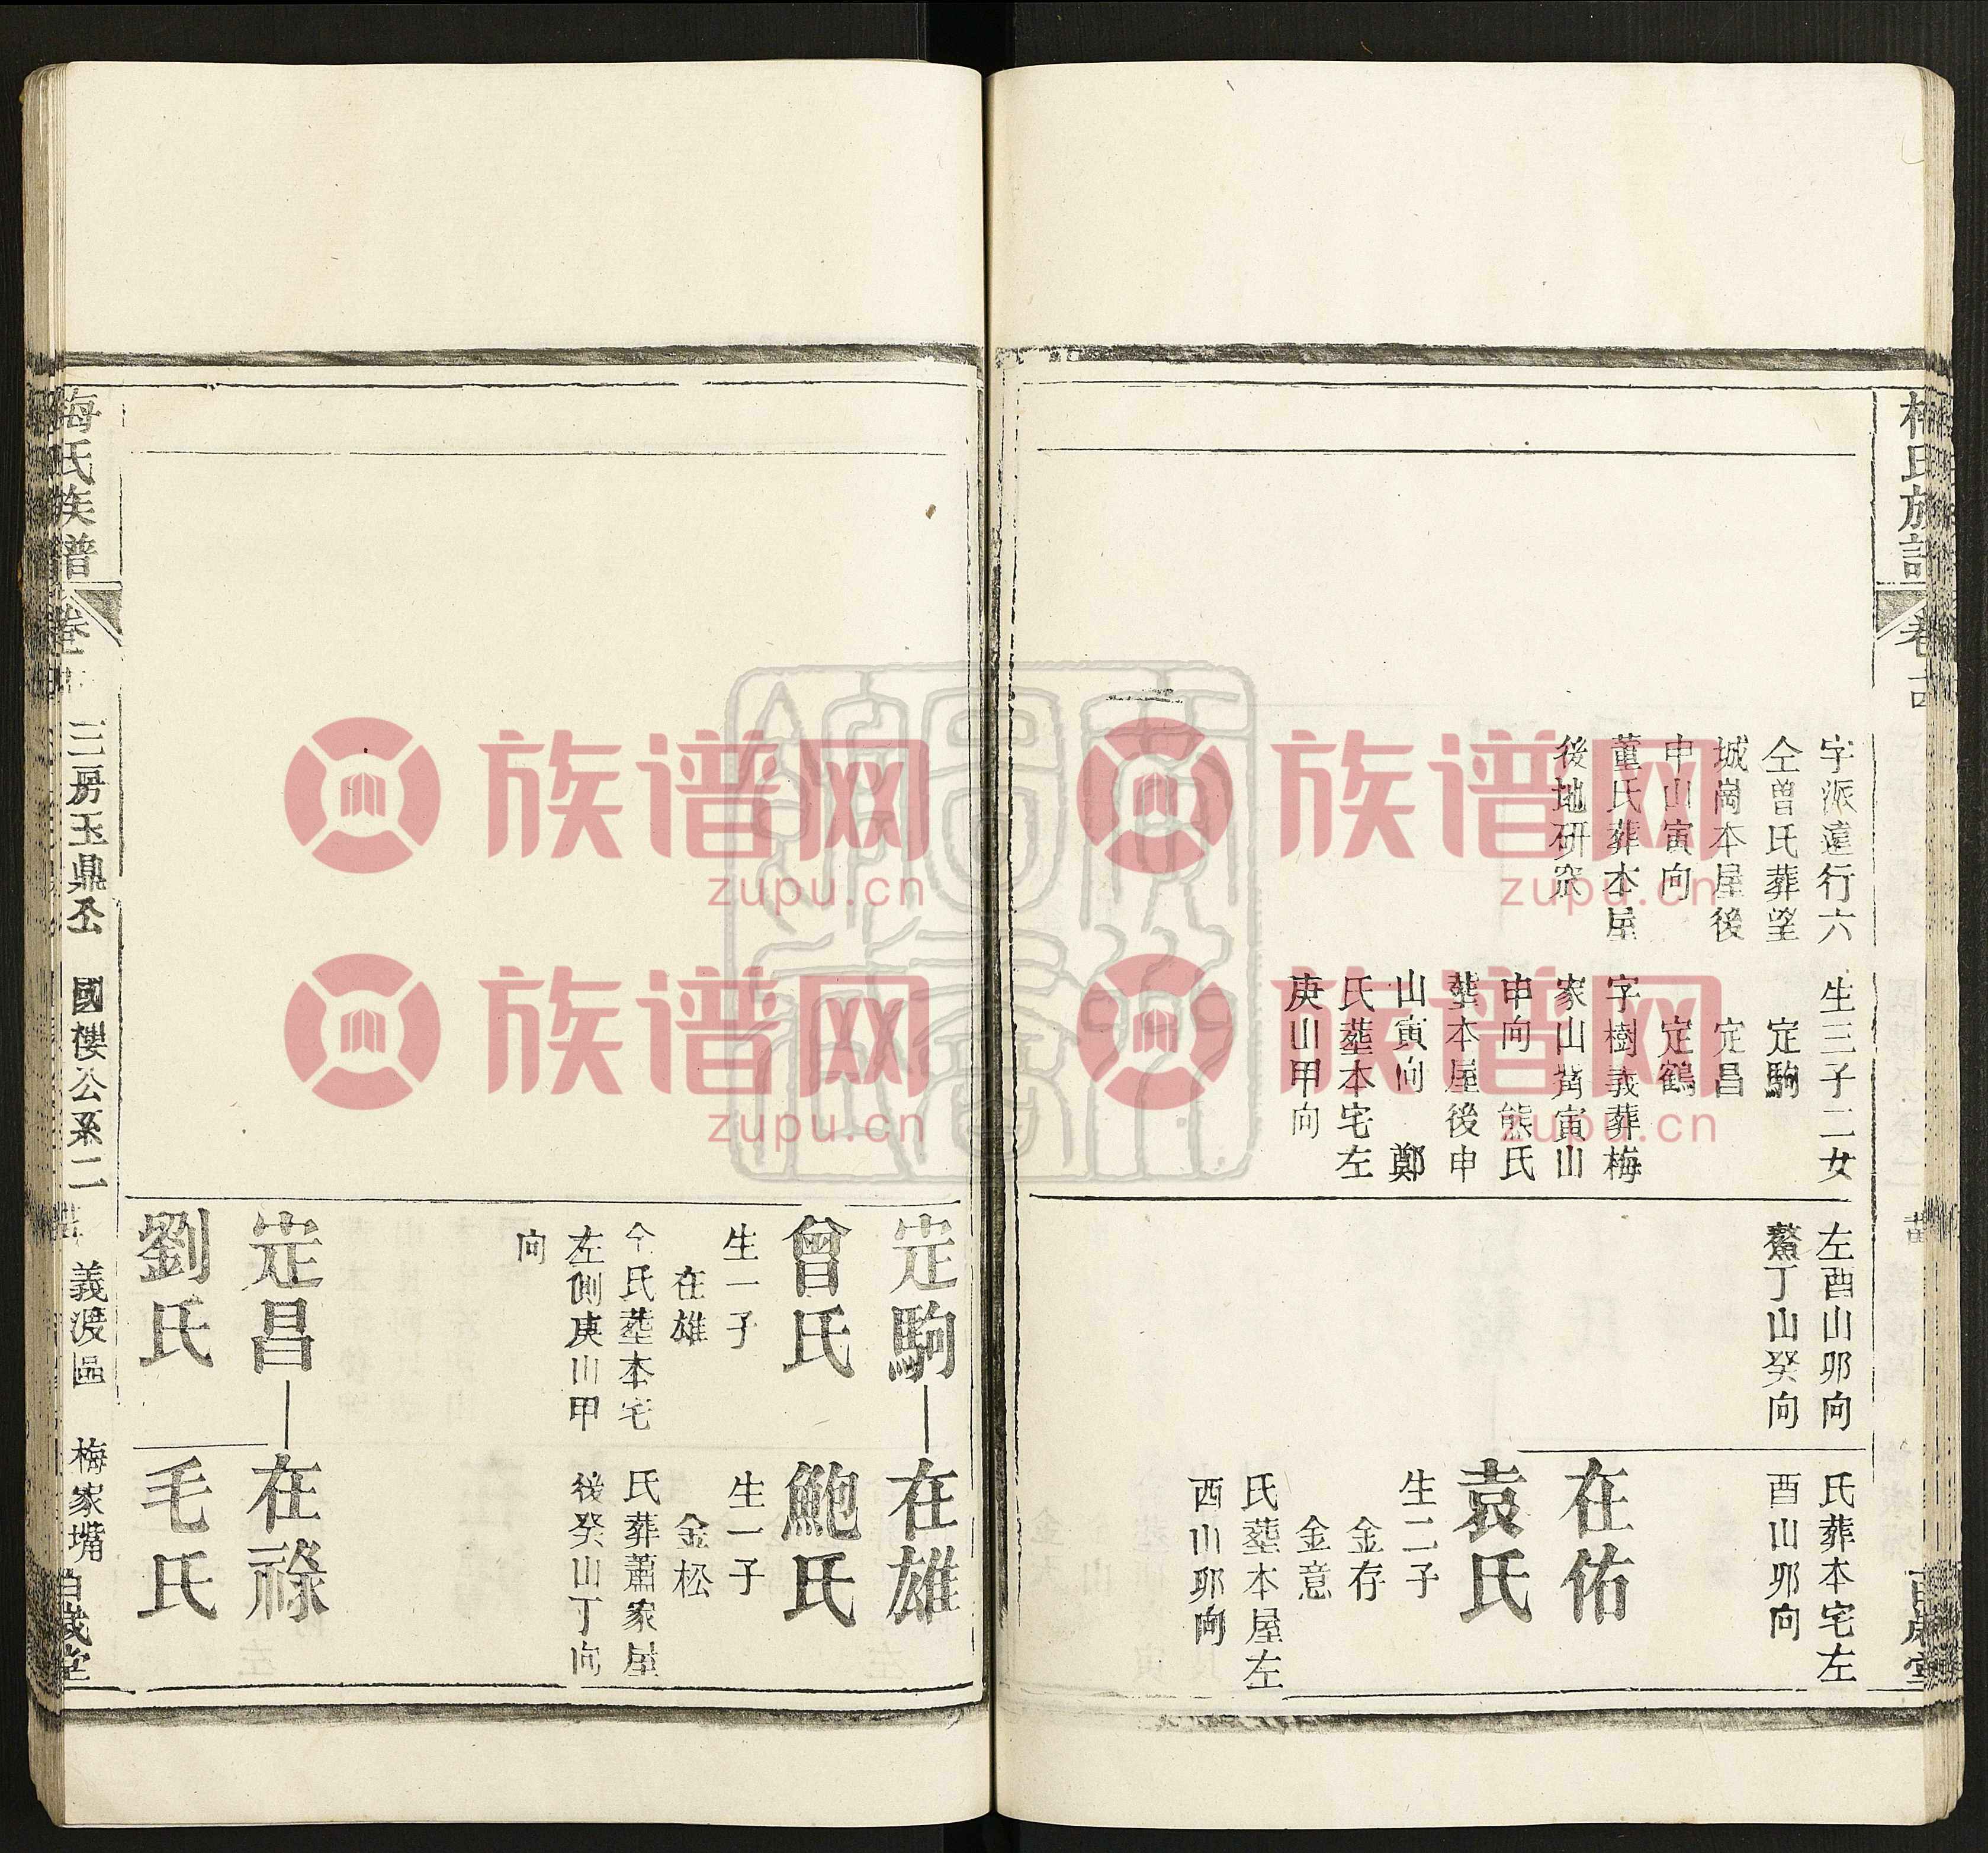 梅氏族譜
卷
百歲堂
字派遠行六
仝曾氏葬望
城崗本屋後
申山寅向
董氏葬本屋
後地研穼
生三子二女
定駒
定昌
定鶴
字樹義葬梅
家山背寅山
申向 熊氏
塟本屋後申
山寅向 鄭
氏塟本宅左
庚山甲向
左酉山卯向
鰲丁山癸向
氏葬本宅左
酉山卯向
在佑
袁氏
生二子
金存
金意
氏塟本屋左
酉山卯向
定駒
曾氏
生一子
在雄
仝氏塟本宅
左側庚山甲
向
在雄
鮑氏
生一子
金松
氏葬蕭家屋
後癸山丁向
定昌
劉氏
在祿
毛氏
梅氏族譜
卷
三房玉鼎公 國樓公系二
義渡區 梅家嘴
百歲堂
族谱网
zupu.cn
族谱网
zupu.cn
族谱网
zupu.cn
族谱网
zupu.cn